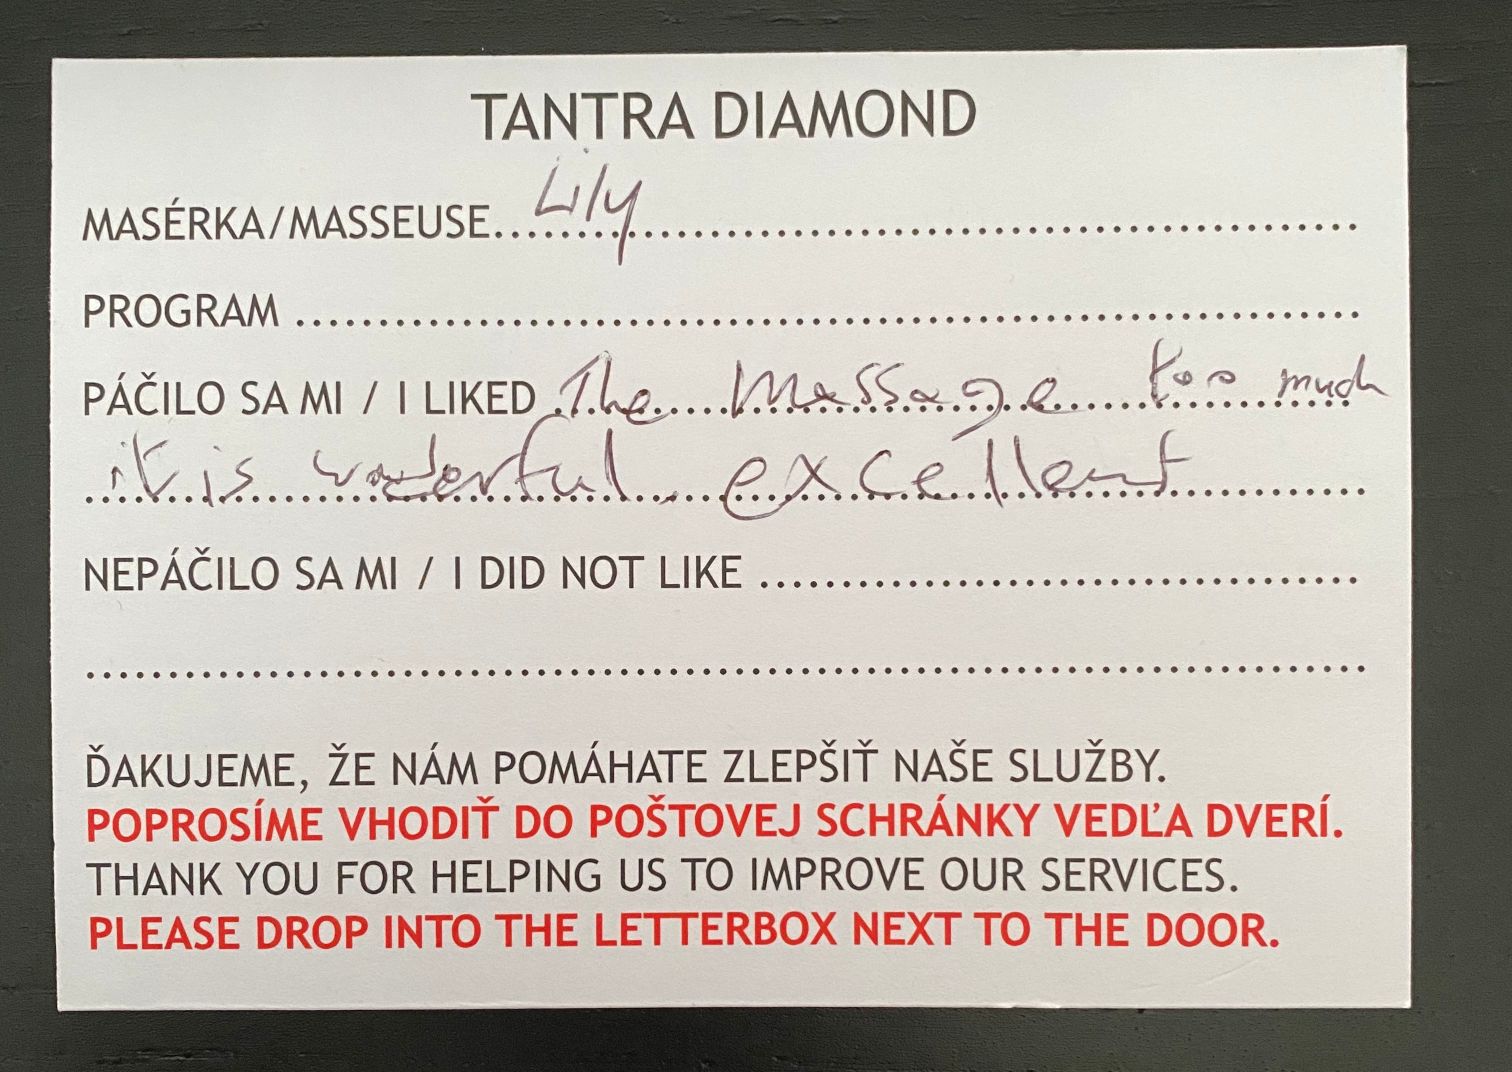 TANTRA DIAMOND
MASÉRKA/MASSEUSE Lily
PROGRAM
PÁČILO SA MI / I LIKED The Massage too much
it is wonderful, excellent
NEPÁČILO SA MI / I DID NOT LIKE
ĎAKUJEME, ŽE NÁM POMÁHATE ZLEPŠIŤ NAŠE SLUŽBY.
POPROSÍME VHODIŤ DO POŠTOVEJ SCHRÁNKY VEDĽA DVERÍ.
THANK YOU FOR HELPING US TO IMPROVE OUR SERVICES.
PLEASE DROP INTO THE LETTERBOX NEXT TO THE DOOR.